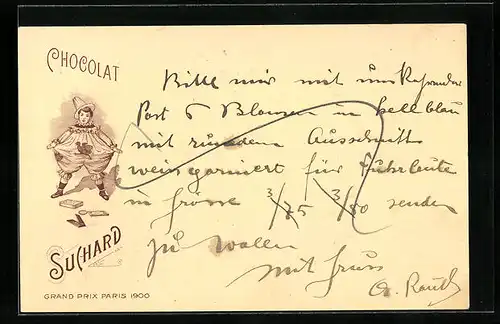 CHOCOLAT
Bitte mir mit umkehrender
Post 6 Blousen in hellblau
mit runden Ausschnitt
weis garniert für Fuhrleute
in Grösse 3/75 3/80 senden
zu wollen
mit Gruss
A. Rauth
SUCHARD
GRAND PRIX PARIS 1900